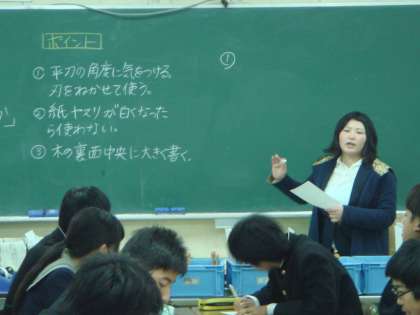 ポイント
① 平刀の角度に気をつける
刃をねかせて使う。
② 紙ヤスリが白くなった
ら使わない。
③ 木の裏面中央に大きく書く。
か」
①